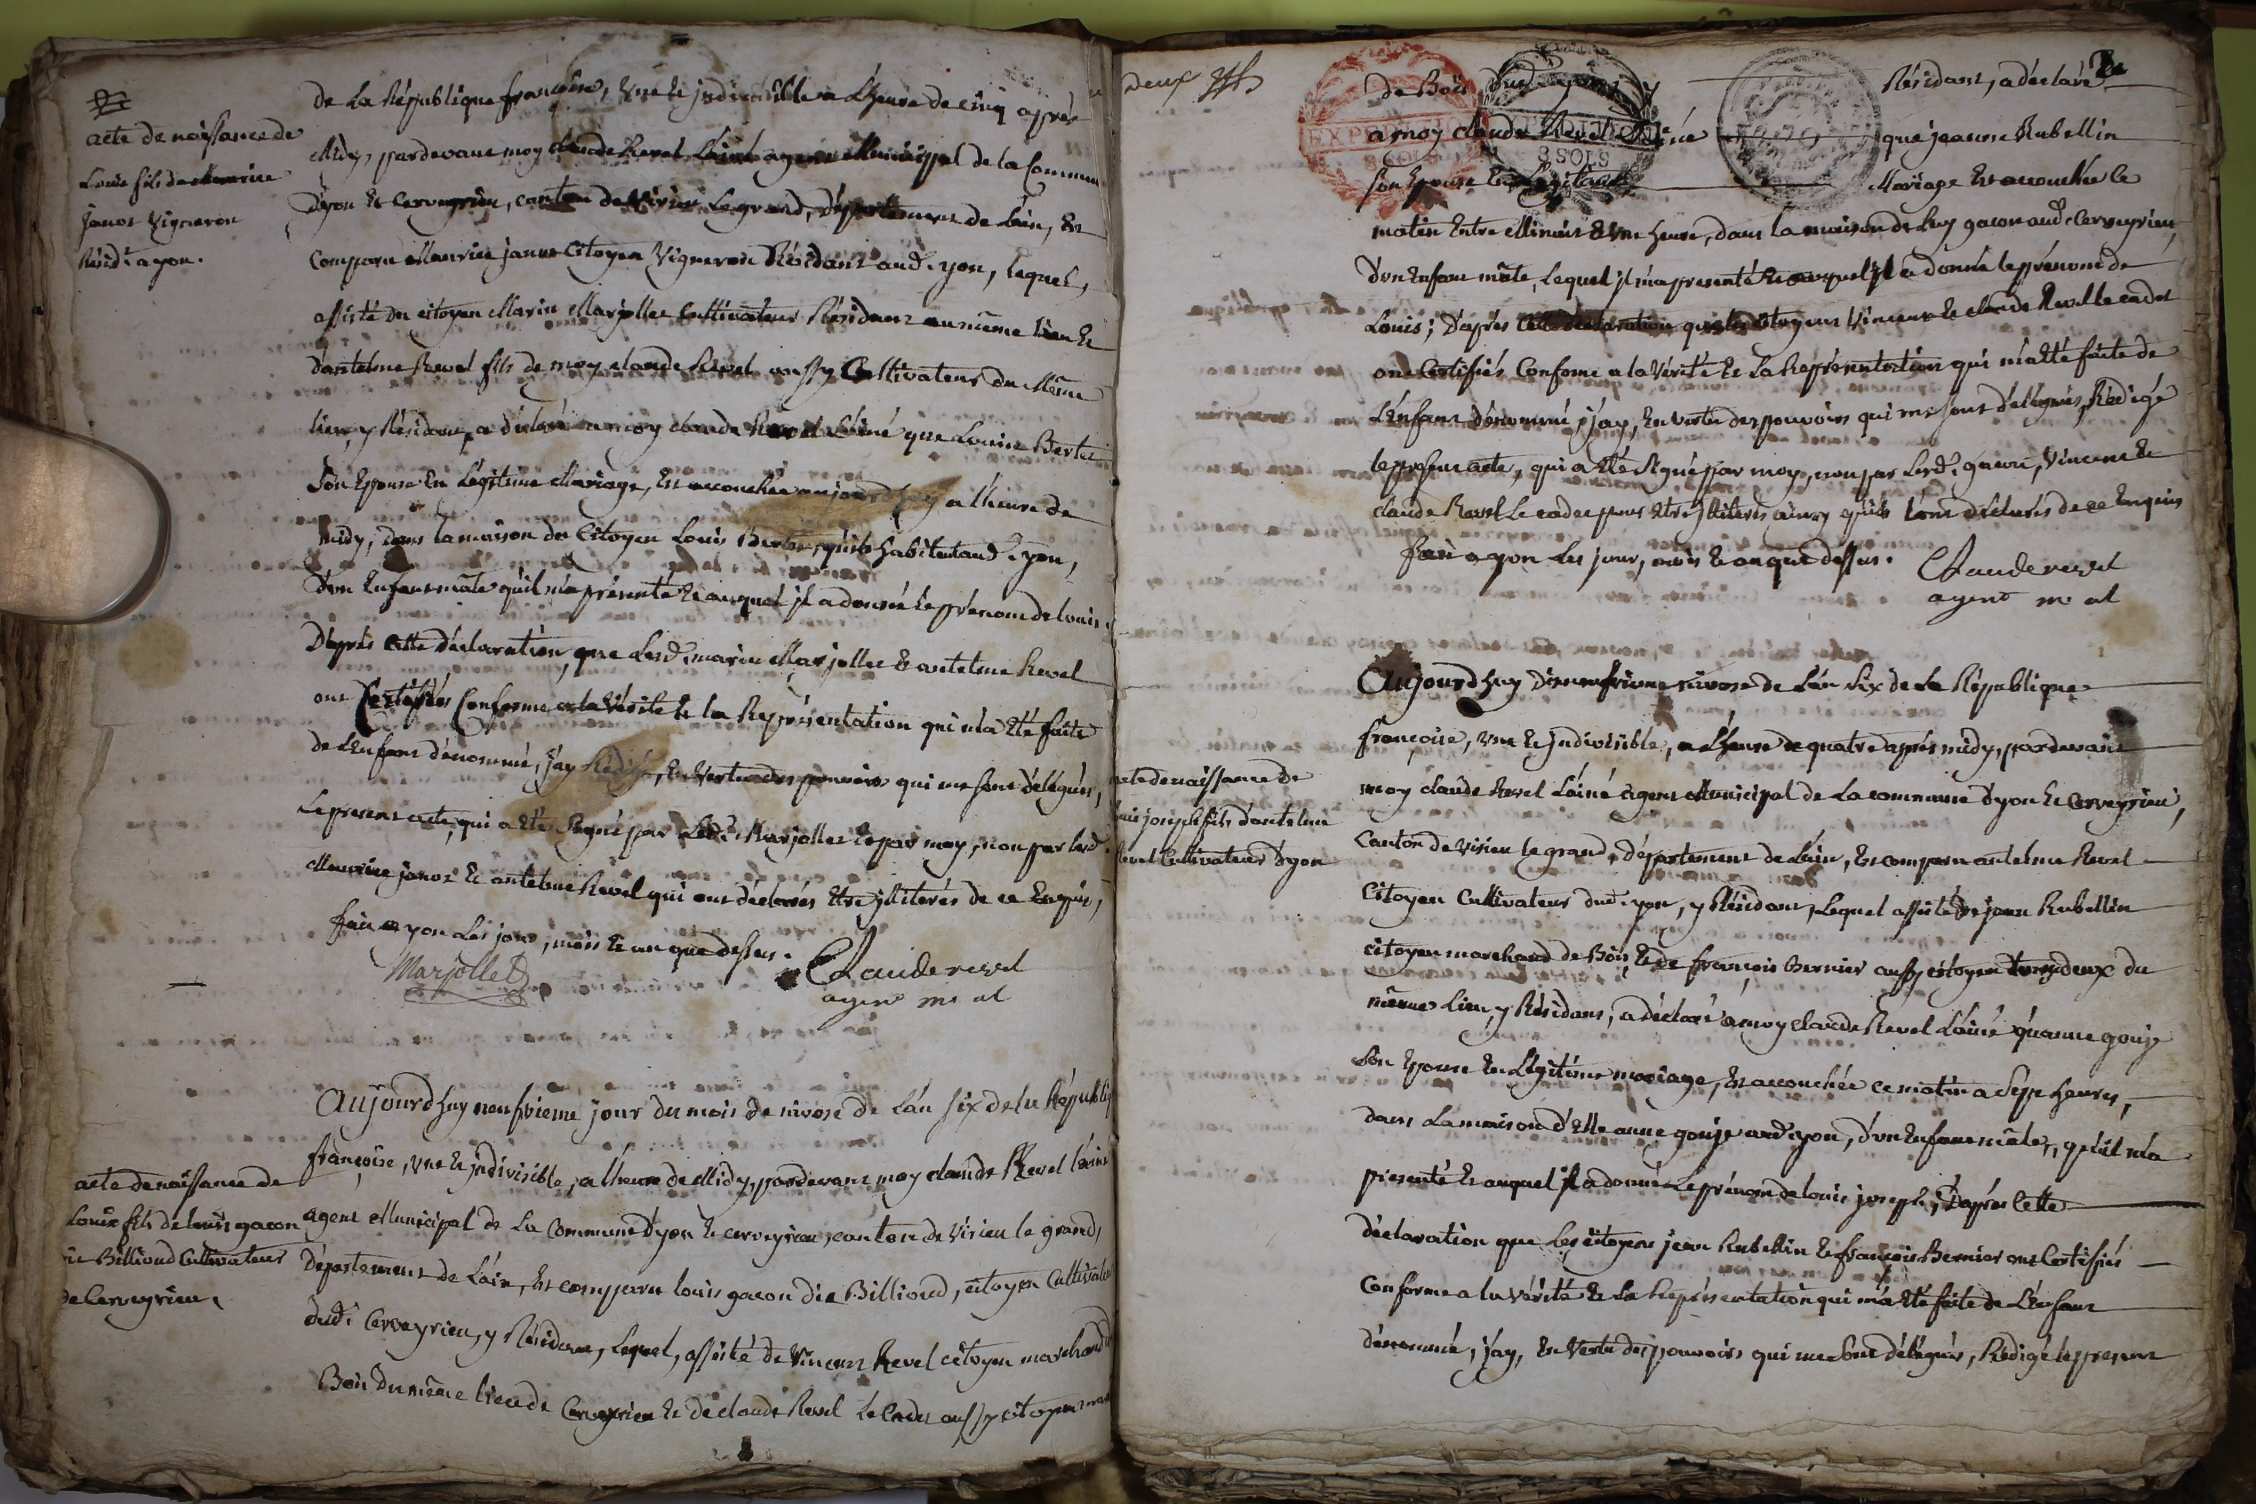 acte de naissance de
Louis fils de Maurice
janot Vigneron
Résidt. a yon.
de La République françoise, Une et jndivisible a L'heure de cinq après
Midy, pardevant moy Claude Revel L'ainé agent Municipal de la Commune
d'yon et Cerveyrieu, canton de Virieu Le grand, département de L'ain, Est
Comparu Maurice janot Citoyen Vigneron Résidant aud. yon, lequel,
assisté du citoyen Marin Marjollet Cultivateur Résidant au même lieu et
d'antelme Revel fils de moy claude Revel aussy Cultivateur du Même
lieu, y Résidant, a déclaré a moy claude Revel L'ainé que Louise Bertet
Son Epouse En Légitime Mariage, Est accouchée aujourd'huy a l'heure de
Midy, dans la maison du Citoyen Louis qu'ils habitent aud. yon,
d'un Enfant mâle qu'il m'a présenté et auquel jl a donné le prénom de louis.
D'après cette déclaration, que Lesd. marin Marjollet & antelme Revel
ont Certifiés Conforme a la Vérité et la Représentation qui m'a été faite
de L'enfant dénommé, j'ay Rédigé, En Vertu des pouvoirs qui me sont délégués,
Le present acte, qui a été Signé par Led. Marjollet et par moy, non par lesd.
Maurice janot et antelme Revel qui ont déclarés être jlliterés de ce Enquis,
fait a yon Les jour, mois et an que dessus.
Marjollet
Clauderevel
agent m al
acte de naissance de
Louis fils de louis gacon
Billioud Cultivateur
de Cerveyrieu.
Aujourd'huy neufvieme jour du mois de nivose de L'an six de la Républiq
françoise, une et jndivisible, a l'heure de Midy, pardevant moy claude Revel l'ainé
agent Municipal de La Commune d'yon et cerveyrieu, canton de Virieu le grand,
Département de L'ain, Est comparu louis gacon dit Billioud, citoyen Cultivateur
dud. Cerveyrieu, y Résidant, Lequel, assisté de Vincent Revel citoyen marchand de
Bois du même lieu de Cerveyrieu et de claude Revel Le Cadet aussy citoyen mar
deux
de Bois dud. y Résidant, a déclaré
a moy claude Revel L'ainé que jeanne Rubellin
Son Epouse En Légitime Mariage Est accouchée ce
matin Entre Minuit & Une heure, dans la maison de Luy gacon aud. Cerveyrieu,
d'un Enfant mâle, Lequel jl m'a présenté et auquel jl a donné le prénom de
Louis; D'après Cette déclaration que les Citoyens Vincent & claude Revel le cadet
ont Certifiés Conforme a la Vérité et La Représentation qui m'a été faite de
L'enfant dénommé, j'ay, En vertu des pouvoirs qui me sont délégués, Rédigé
le présent acte, qui a été Signé par moy, non par Lesd. gacon, Vincent et
claude Revel Le cadet pour être jlliterés ainsy qu'ils l'ont déclarés de ce Enquis
fait a yon Les jour, mois et an que dessus.
Clauderevel
agent m al
acte de naissance de
louis joseph fils d'antelme
Revel Cultivateur d'yon
Aujourd'huy nivose de L'an six de La République
françoise, une et jndivisible, a L'heure de quatre après midy, pardevant
moy claude Revel L'ainé agent Municipal de La commune d'yon et Cerveyrieu,
Canton de Virieu le grand, département de L'ain, Est comparu antelme Revel
Citoyen Cultivateur dud. yon, y Résidant, Lequel assisté de jean Rubellin
citoyen marchand de Bois, & de françois Bernier aussy citoyen tous deux du
même Lieu, y Résidans, a déclaré a moy claude Revel L'ainé qu'anne gouje
Son Epouse En Légitime mariage, Est accouchée ce matin a Sept heures,
dans La maison d'elle anne gouje aud. yon, d'un Enfant mâle, qu'il m'a
présenté et auquel jl a donné Le prénom de louis joseph; D'après Cette
déclaration que Les citoyens jean Rubellin & françois Bernier ont Certifiés
Conforme a la Vérité & La Représentation qui m'a été faite de L'enfant
dénommé, j'ay, En Vertu des pouvoirs qui me sont délégués, Rédigé le présent